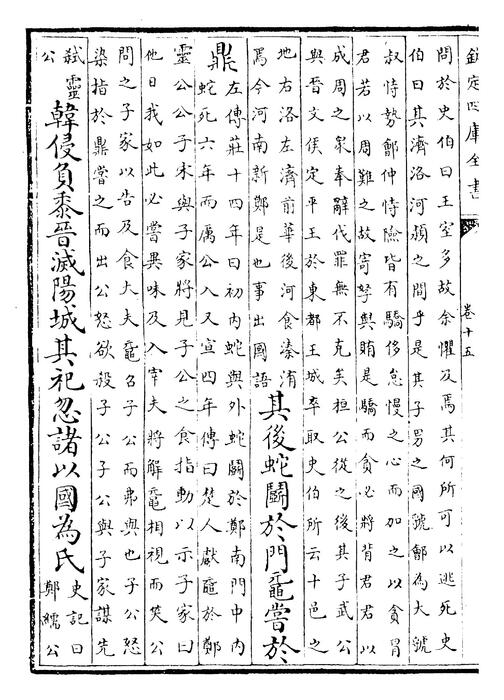 欽定四庫全書
卷十五
問於史伯曰王室多故余懼及焉其何所可以逃死史
伯曰其濟洛河潁之間乎是其子男之國虢鄶為大虢
叔恃勢鄶仲恃險皆有驕侈怠慢之心而加之以貪冒
君若以周難之故寄孥與賄是驕而貪必將背君君以
成周之衆奉辭伐罪無不克矣桓公從之後其子武公
與晉文侯定平王於東都王城卒取史伯所云十邑之
地右洛左濟前華後河食溱洧
焉今河南新鄭是也事出國語
其後蛇鬭於門黿嘗於
鼎
左傳莊十四年曰初内蛇與外蛇鬭於鄭南門中内
蛇死六年而厲公入又宣四年傳曰楚人獻黿於鄭
靈公公子宋與子家將見子公之食指動以示子家曰
他日我如此必嘗異味及入宰夫將解黿相視而笑公
問之子家以告及食大夫黿召子公而弗與也子公怒
染指於鼎嘗之而出公怒欲殺子公子公與子家謀先
弒靈
公
韓侵負黍晉滅陽城其祀忽諸以國為氏
史記曰
鄭繻公